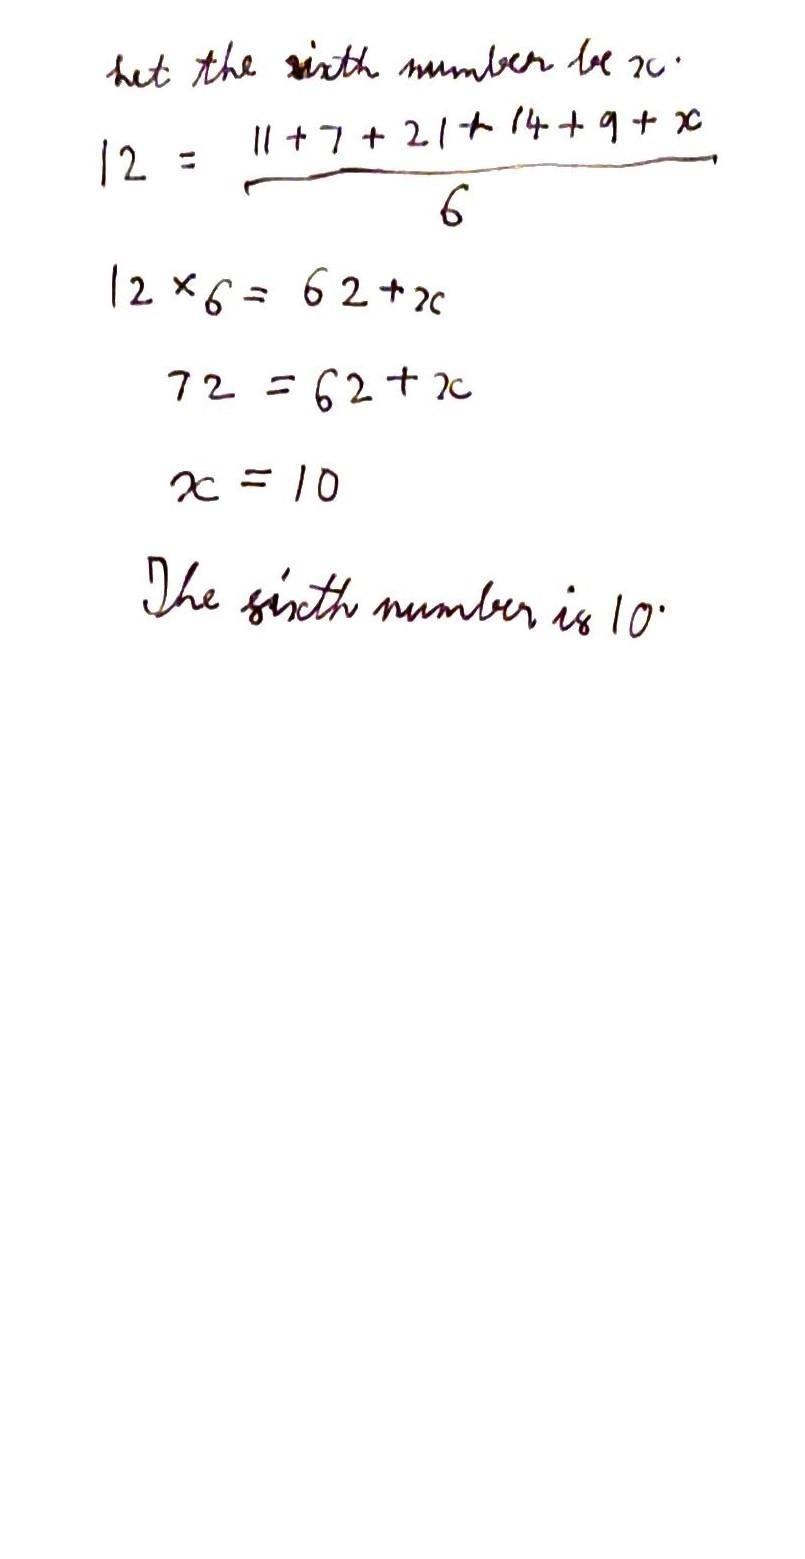 Let the sixth number be x.
12 = 11 + 7 + 21 + 14 + 9 + x
6
12 × 6 = 62 + x
72 = 62 + x
x = 10
The sixth number is 10.